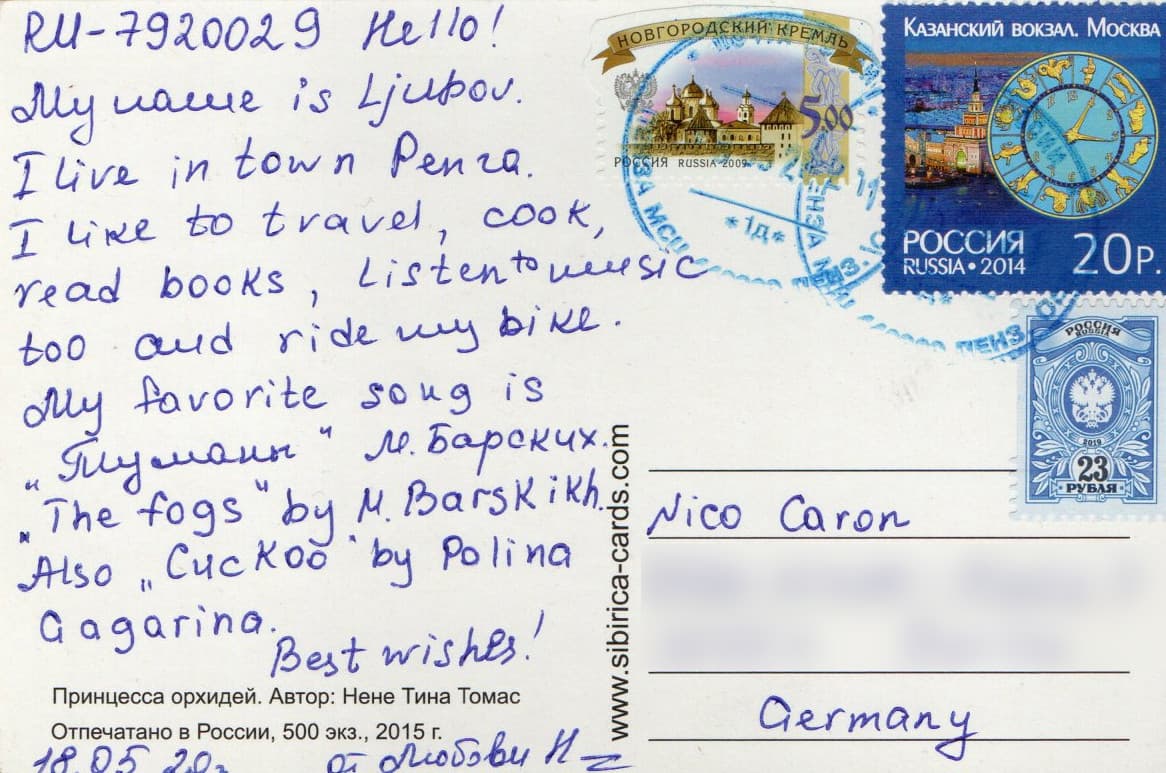 RU-7920029 Hello!
My name is Ljubov.
I live in town Penza.
I like to travel, cook,
read books, listen to music
too and ride my bike.
My favorite song is
„Туманы" М. Барских.
„The fogs" by M. Barskikh.
Also „Cuckoo" by Polina
Gagarina.
Best wishes!
Принцесса орхидей. Автор: Нене Тина Томас
Отпечатано в России, 500 экз., 2015 г.
18.05 20г
от Любови Н
www.sibirica-cards.com
НОВГОРОДСКИЙ КРЕМЛЬ
5.00
РОССИЯ RUSSIA 2009
КАЗАНСКИЙ ВОКЗАЛ. МОСКВА
РОССИЯ
RUSSIA • 2014
20 Р.
РОССИЯ
RUSSIA
2019
23
РУБЛЯ
*1д*
Nico Caron
Germany